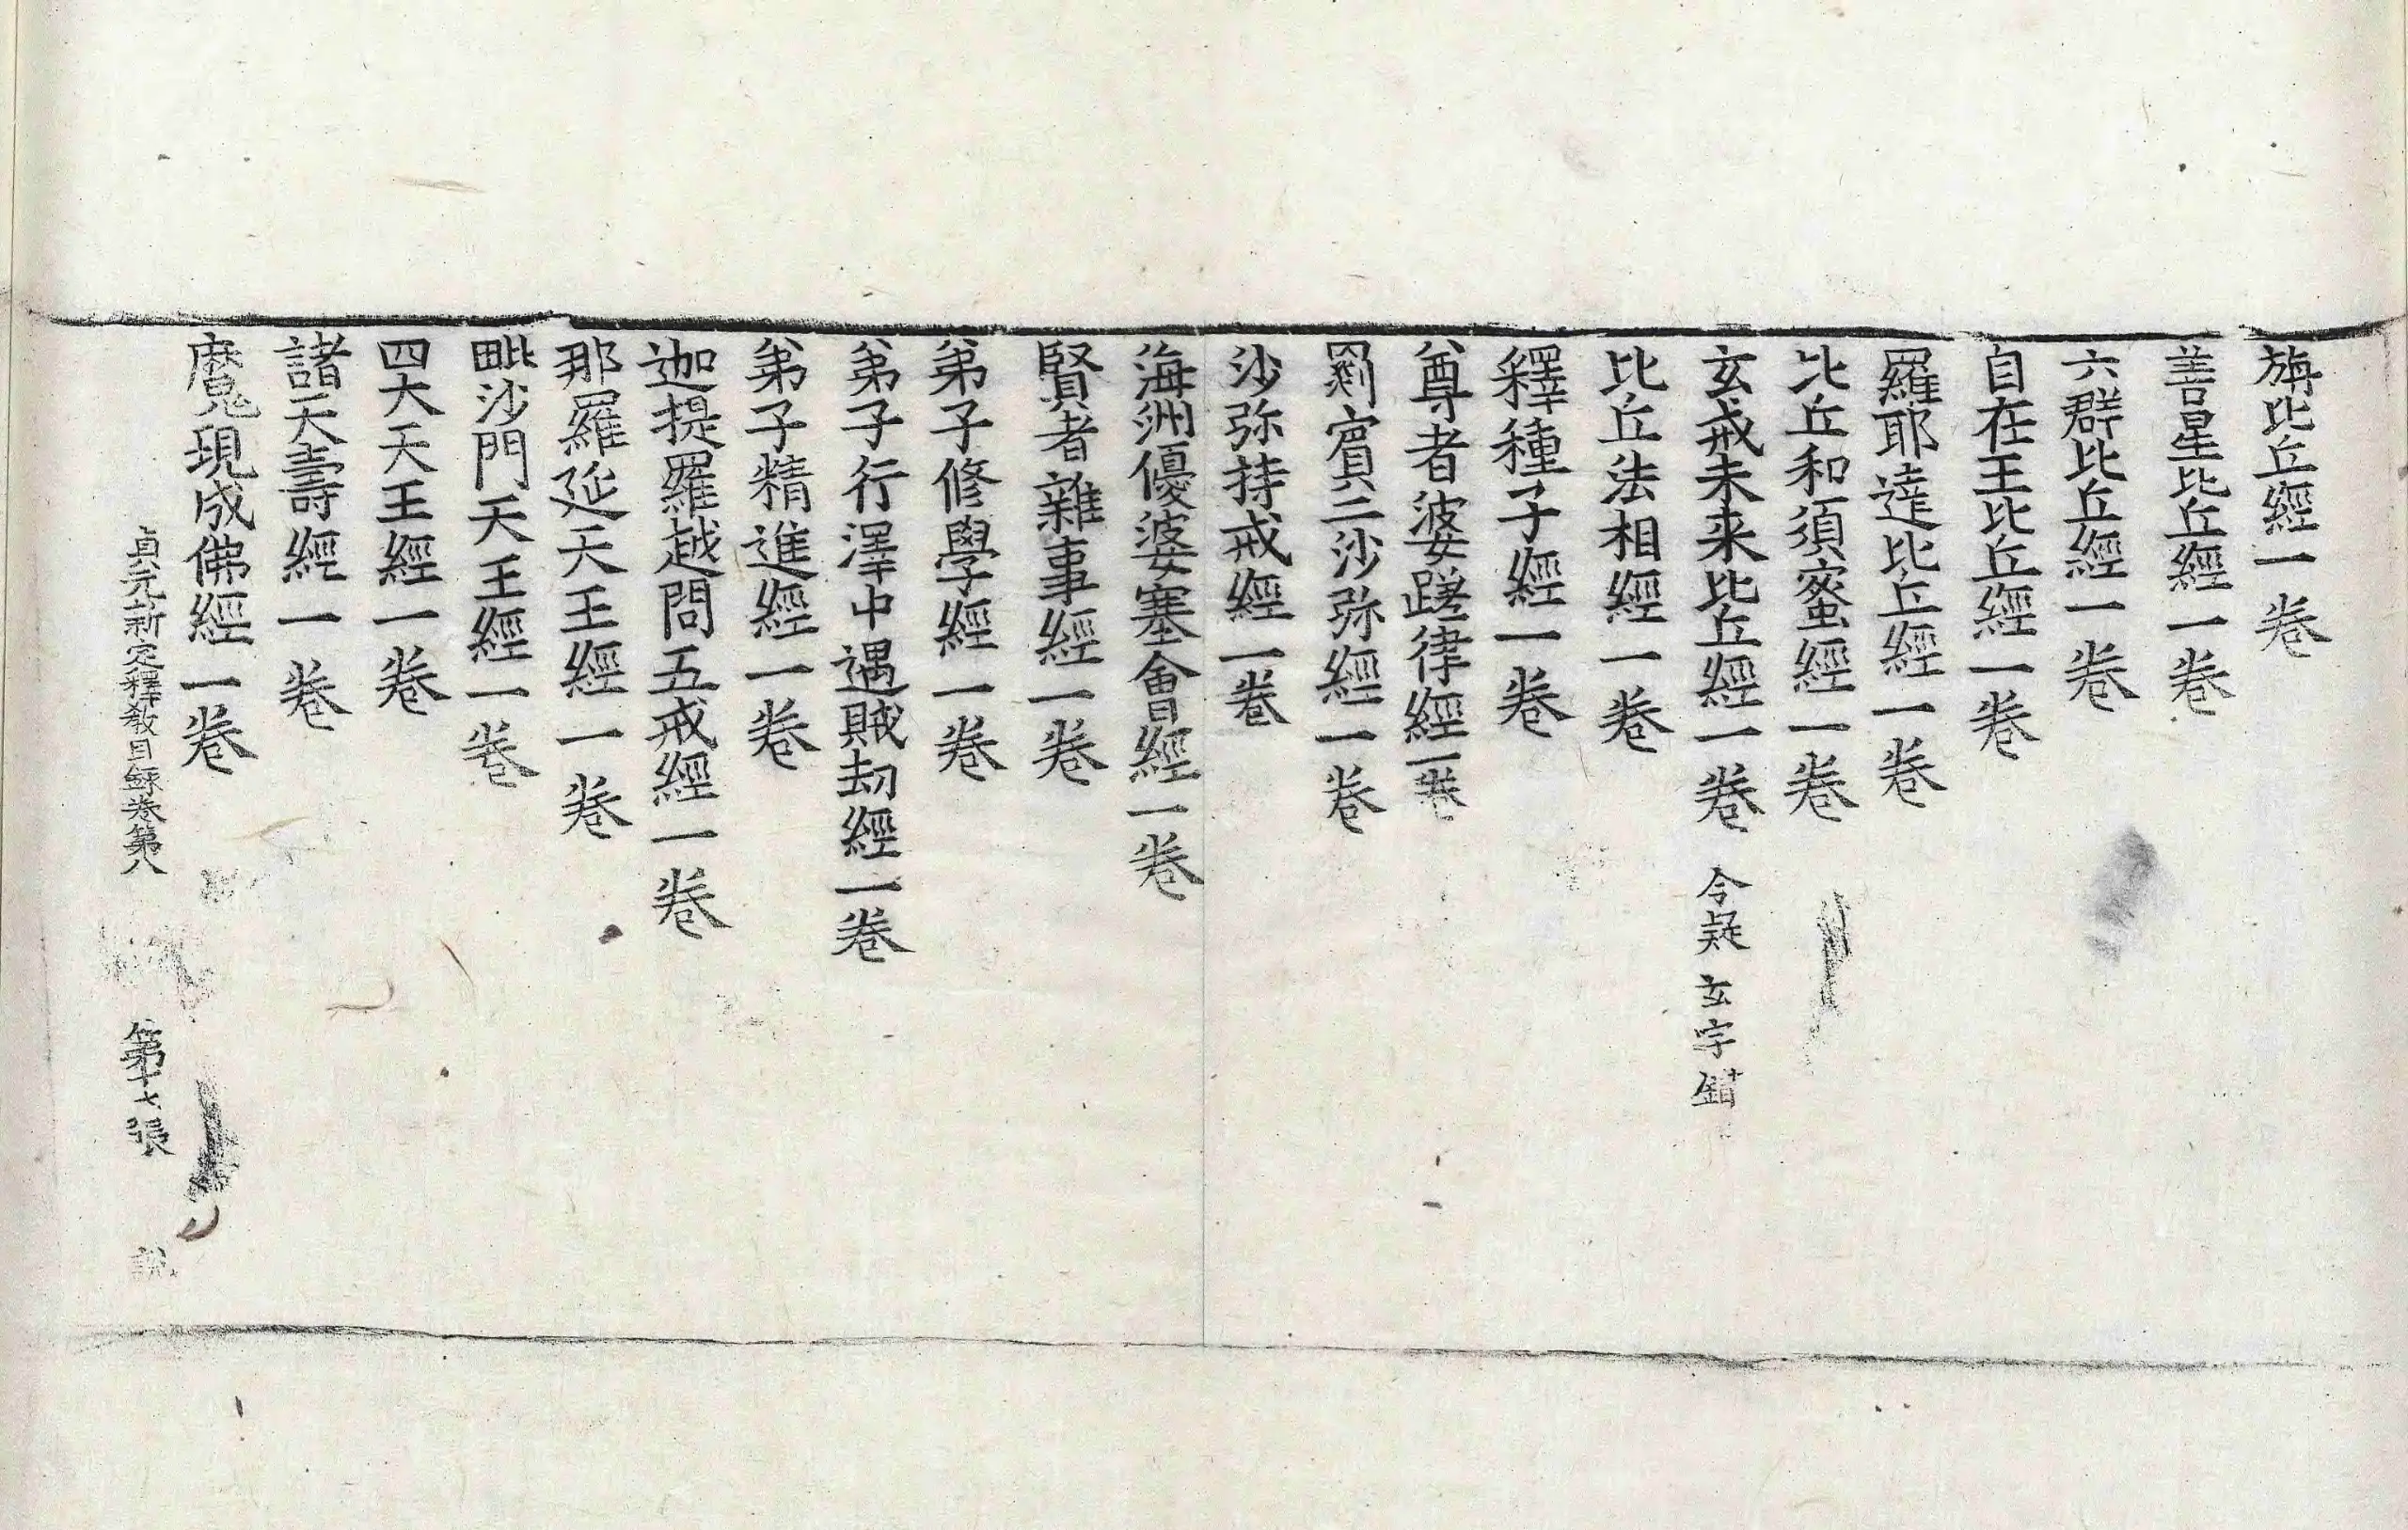 旃比丘經一卷
善星比丘經一卷
六群比丘經一卷
自在王比丘經一卷
羅耶達比丘經一卷
比丘和須蜜經一卷
玄戒未来比丘經一卷 今疑玄字錯
比丘法相經一卷
釋種子經一卷
尊者婆蹉律經一卷
罽賓二沙弥經一卷
沙弥持戒經一卷
海洲優婆塞會經一卷
賢者雜事經一卷
弟子修學經一卷
弟子行澤中遇賊劫經一卷
弟子精進經一卷
迦提羅越問五戒經一卷
那羅延天王經一卷
毗沙門天王經一卷
四大天王經一卷
諸天壽經一卷
魔現成佛經一卷
貞元新定釋教目録卷第八 第十七張 説